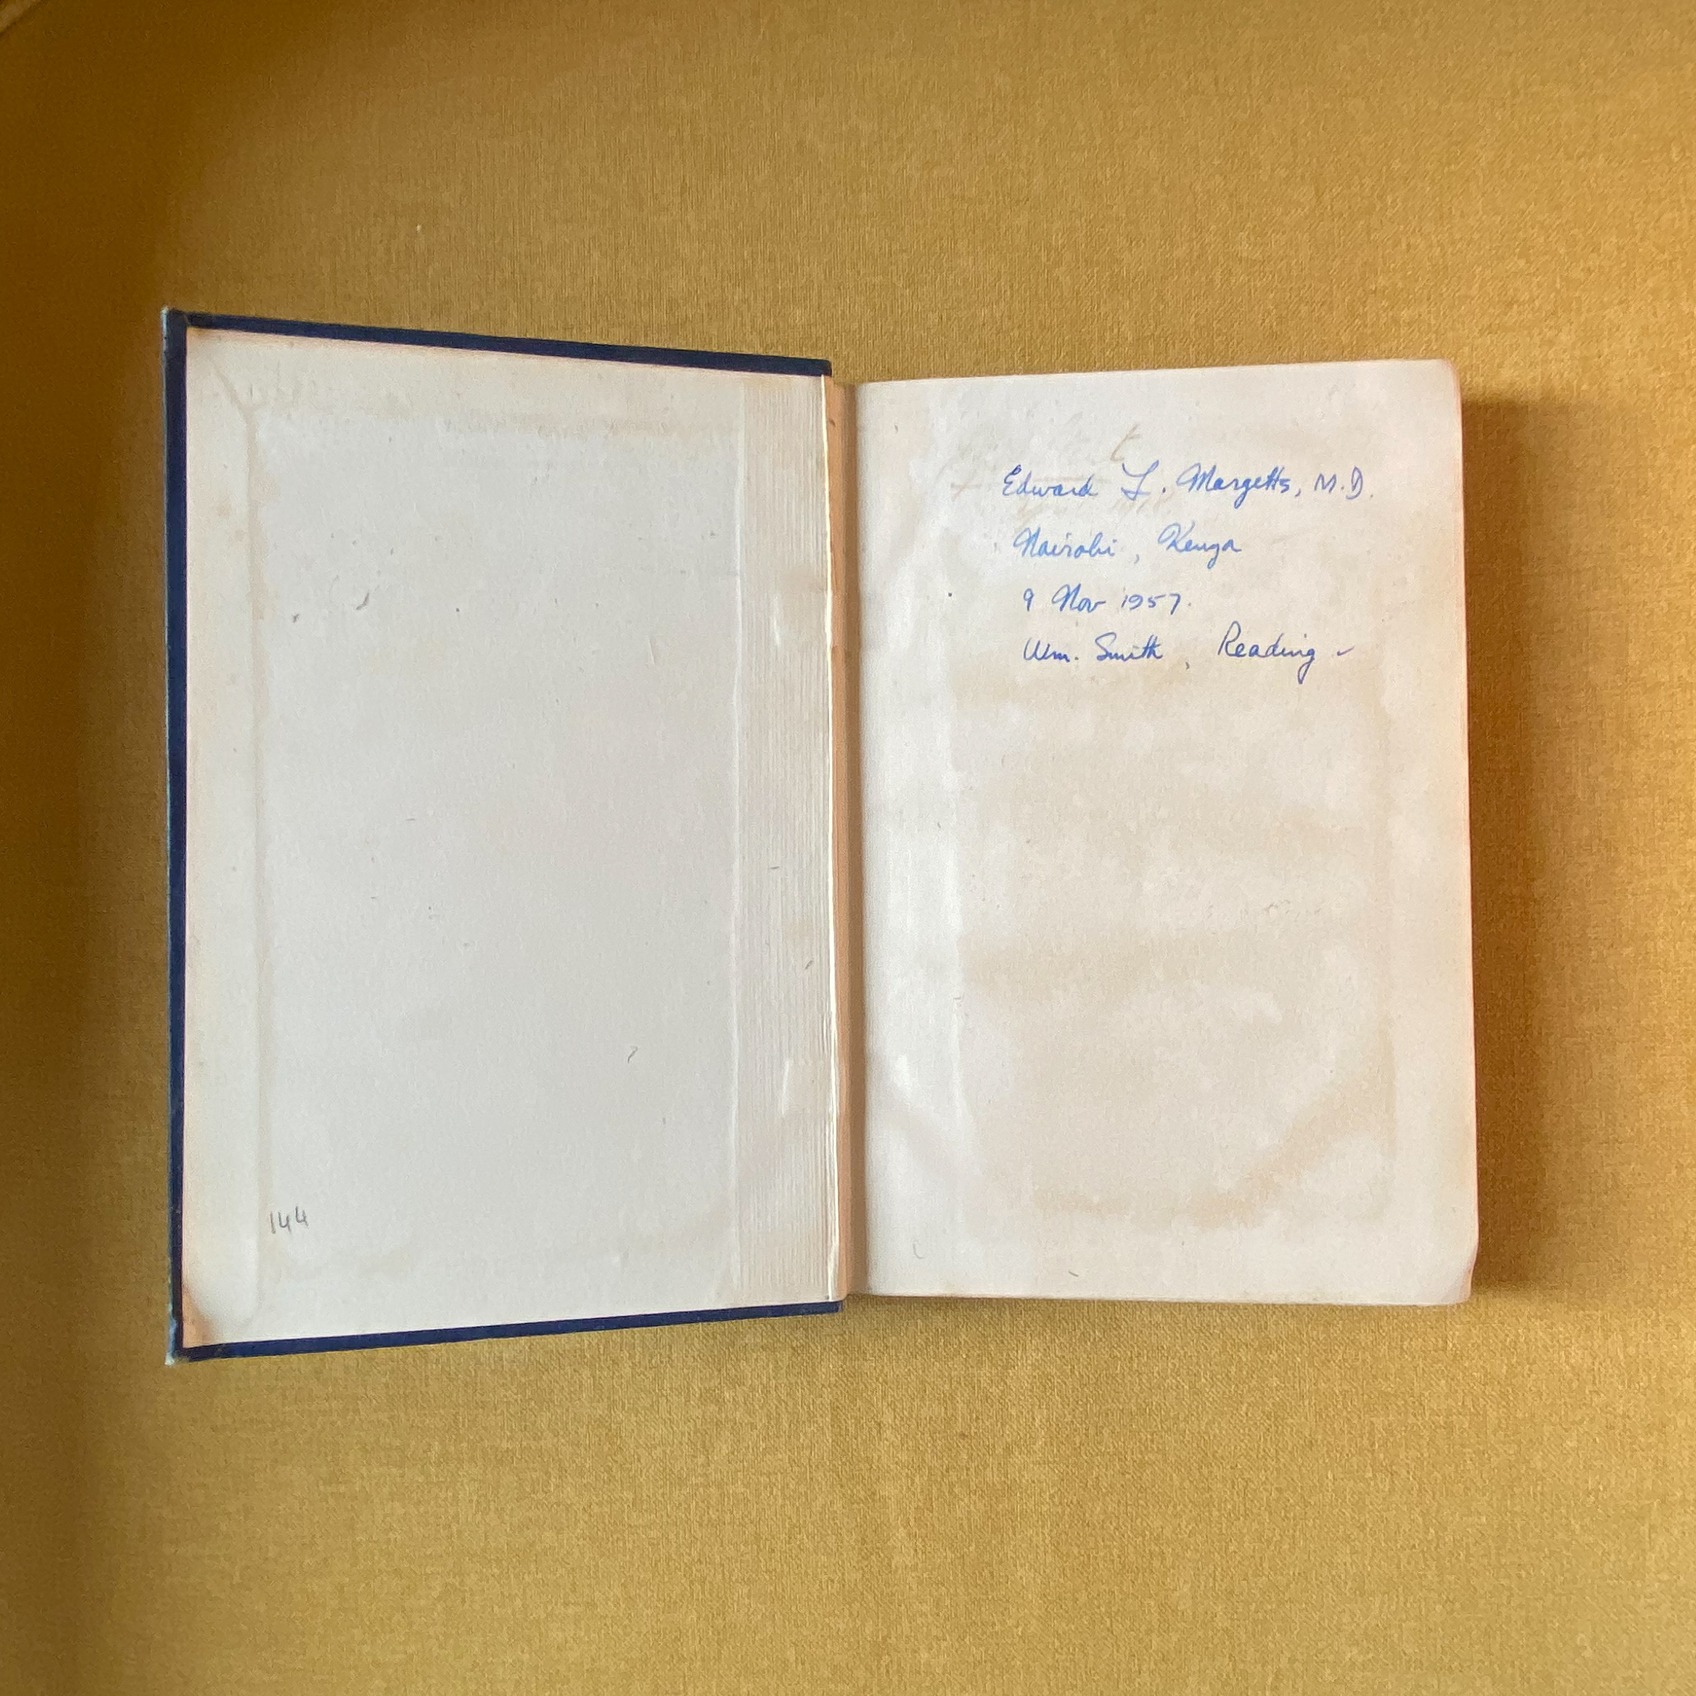 144
Edward L. Margetts, M.D.
Nairobi, Kenya
9 Nov 1957.
Wm. Smith, Reading -